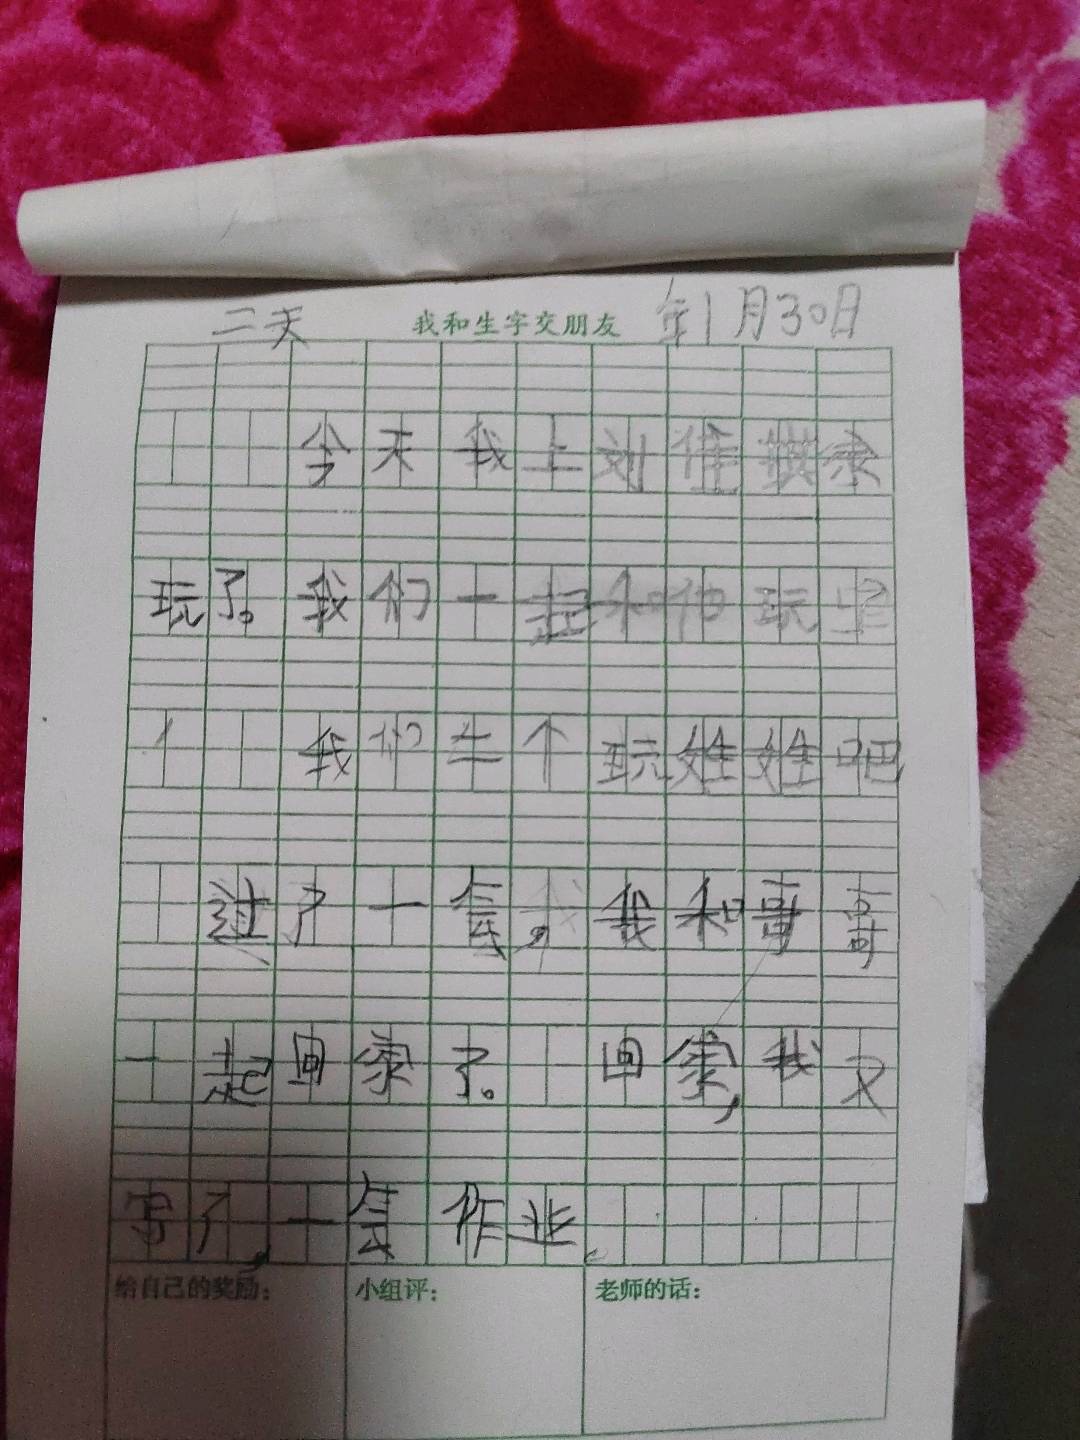 二天 我和生字交朋友 年1月30日
今天我上刘佳琪家
玩了。我们一起和他玩
我们三个玩姓姓吧
过了一会,我和哥哥
一起回家了。回家,我又
写了,一会作业。
给自己的奖励: 小组评: 老师的话: